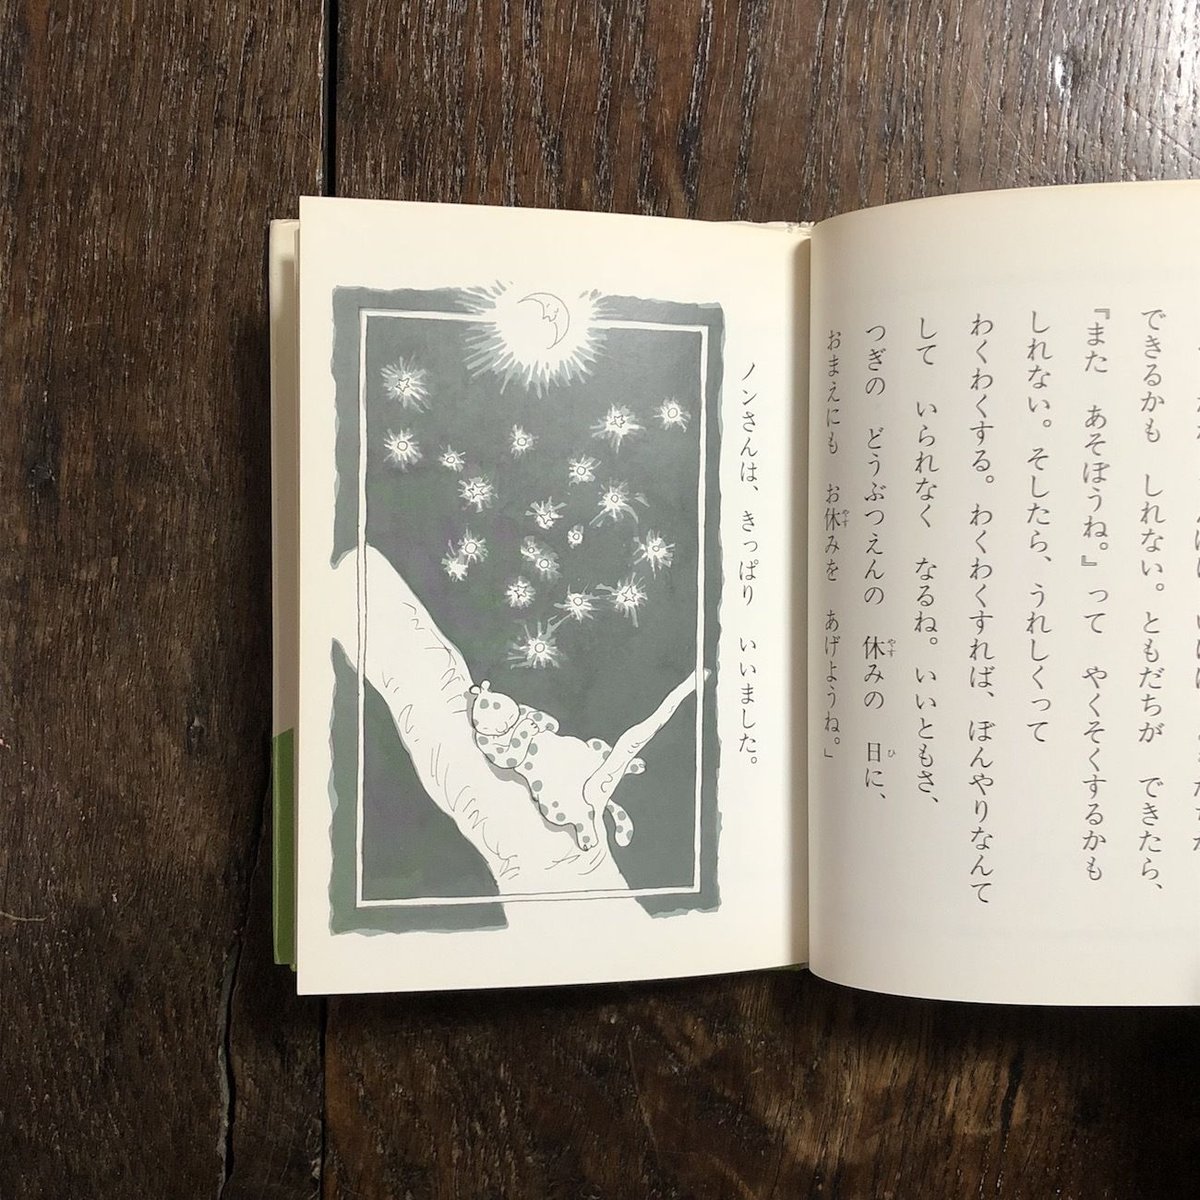 できるかも しれない。ともだちが できたら、
『また あそぼうね。』って やくそくするかも
しれない。そしたら、うれしくって
わくわくする。わくわくすれば、ぼんやりなんて
して いられなく なるね。いいともさ、
つぎの どうぶつえんの 休みの 日に、
おまえにも お休みを あげようね。」
ノンさんは、きっぱり いいました。